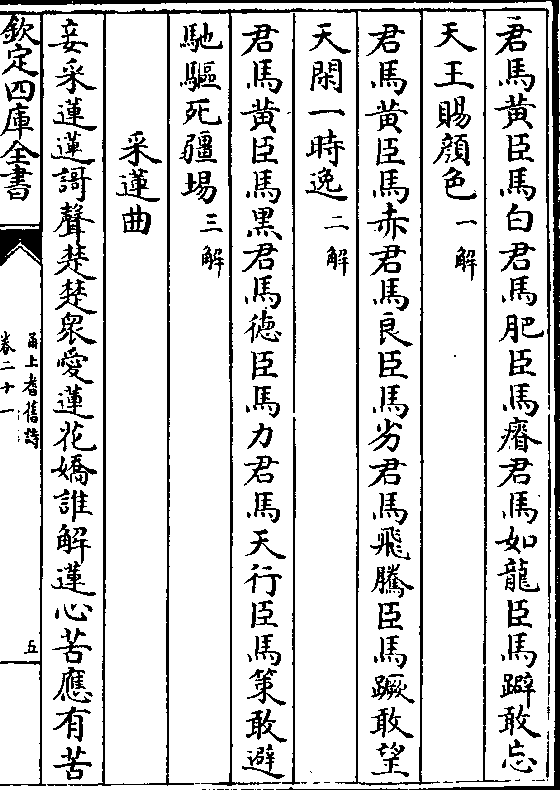 君馬黄臣馬白君馬肥臣馬瘠君馬如龍臣馬躃敢忘
天王賜顔色一解
君馬黄臣馬赤君馬良臣馬劣君馬飛騰臣馬蹶敢望
天閑一時逸二解
君馬黄臣馬黑君馬徳臣馬力君馬天行臣馬策敢避
馳驅死疆埸三解
采蓮曲
妾采蓮蓮謌聲楚楚衆愛蓮花嬌誰解蓮心苦應有苦
欽定四庫全書
甬上耆舊詩
卷二十一
五